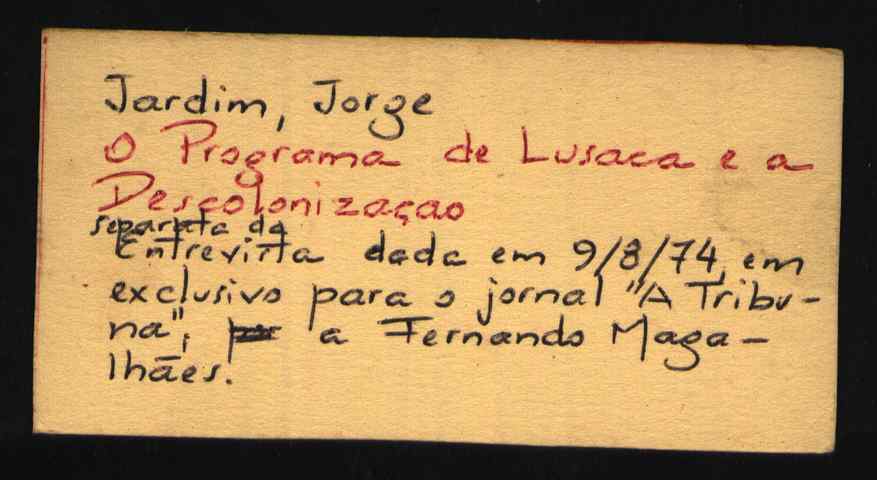 Jardim, Jorge
O Programa de Lusaca e a
Descolonizaçao
separata da
Entrevista dada em 9/8/74, em
exclusivo para o jornal "A Tribu-
na", a Fernando Maga-
lhães.